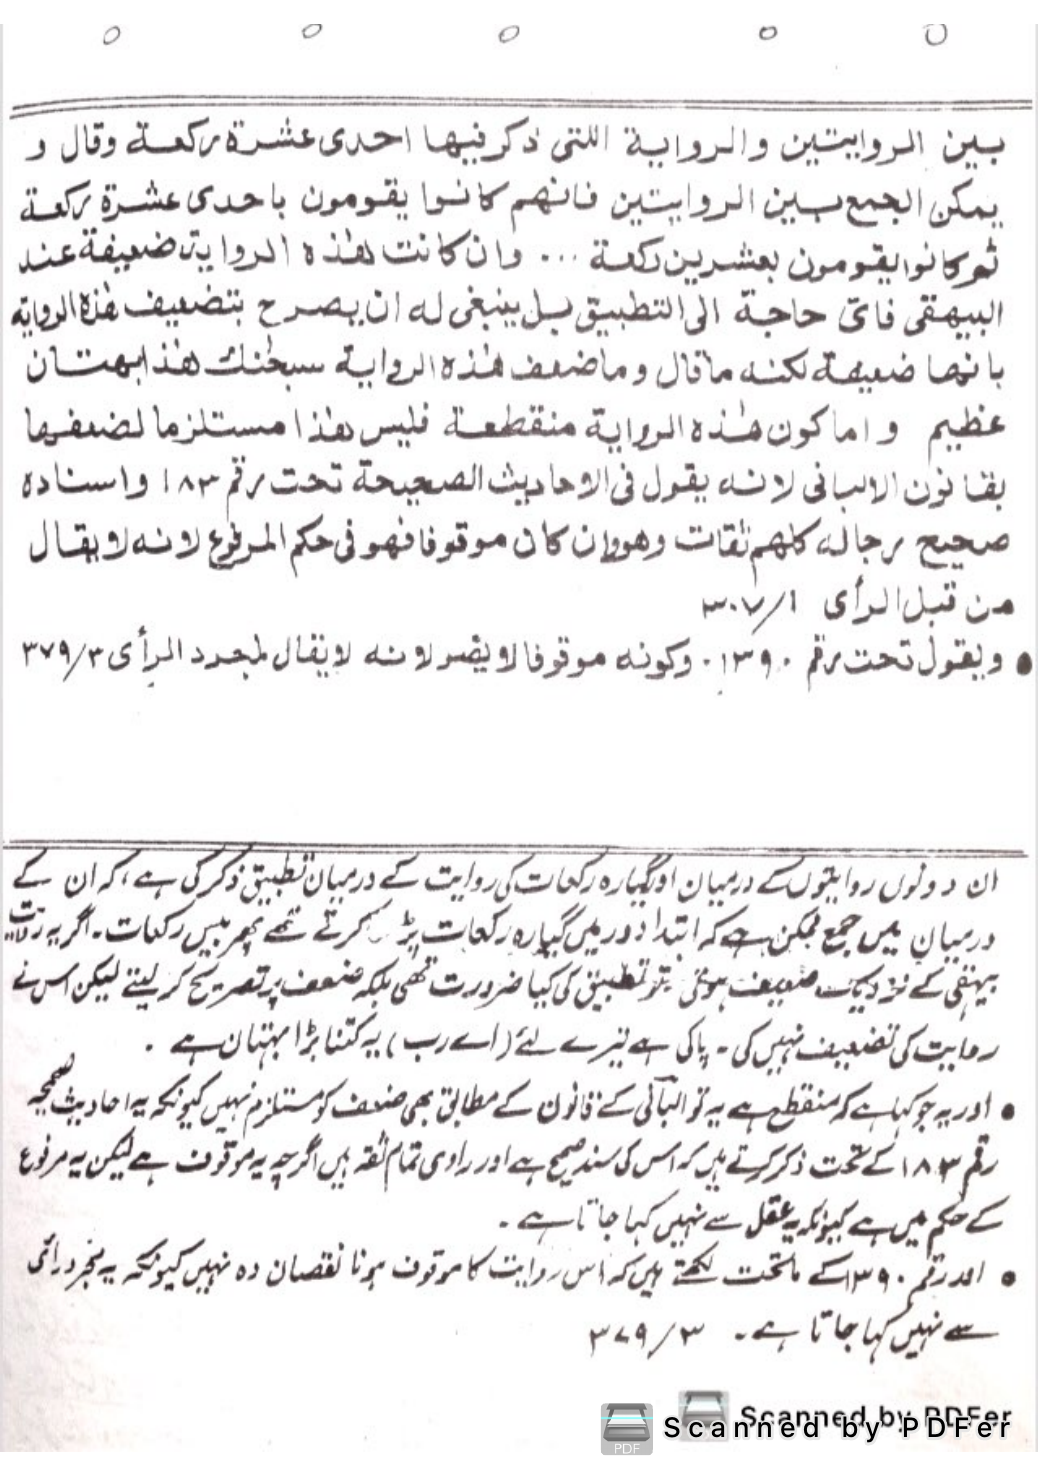 بين الروايتين والرواية اللتى ذكر فيها احدى عشرة ركعة وقال و
يمكن الجمع بين الروايتين فانهم كانوا يقومون باحدى عشرة ركعة
ثم كانوا يقومون بعشرين ركعة ... وان كانت هذه الرواية ضعيفة عند
البيهقى فاىّ حاجة الى التطبيق بل ينبغى له ان يصرح بتضعيف هذه الرواية
بانها ضعيفة لكنه ما قال وما ضعف هذه الرواية سبحنك هذا بهتان
عظيم واما كون هذه الرواية منقطعة فليس هذا مستلزما لضعفها
بقانون الالبانى لانه يقول فى الاحاديث الصحيحة تحت رقم ١٨٣ واسناده
صحيح رجاله كلهم ثقات وهو وان كان موقوفا فهو فى حكم المرفوع لانه لا يقال
من قبل الرأى ٣٠٧/١
● ويقول تحت رقم ١٣٩٠ . وكونه موقوفا لا يضر لانه لا يقال لمجرد الرأى ٣٧٩/٣
ان دونوں روایتوں کے درمیان اور گیارہ رکعات کی روایت کے درمیان تطبیق ذکر کی ہے ، کہ ان کے
درمیان میں جمع ممکن ہے کہ ابتداء دور میں گیارہ رکعات پڑھا کرتے تھے پھر بیس رکعات ۔ اگر یہ روایت
بیہقی کے نزدیک ضعیف ہوتی تو تطبیق کی کیا ضرورت تھی بلکہ ضعف پر تصریح کر لیتے لیکن اس نے
روایت کی تضعیف نہیں کی ۔ پاکی ہے تیرے لئے (اے رب) یہ کتنا بڑا بہتان ہے ۔
● اور یہ جو کہا ہے کہ منقطع ہے یہ تو البانی کے قانون کے مطابق بھی ضعف کو مستلزم نہیں کیونکہ یہ احادیث صحیحہ
رقم ١٨٣ کے تحت ذکر کرتے ہیں کہ اس کی سند صحیح ہے اور راوی تمام ثقہ ہیں اگرچہ یہ موقوف ہے لیکن یہ مرفوع
کے حکم میں ہے کیونکہ یہ عقل سے نہیں کہا جاتا ہے ۔
● اور رقم ١٣٩٠ کے ماتحت لکھتے ہیں کہ اس روایت کا موقوف ہونا نقصان دہ نہیں کیونکہ یہ مجرد رائی
سے نہیں کہا جاتا ہے ۔ ٣٧٩/٣
Scanned by PDFer
Scanned by PDFer
PDF